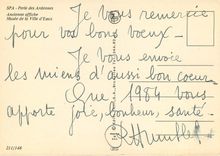 SPA - Porte des Ardennes
Ancienne affiche
Musée de la Ville d'Eaux
Je vous remercie
pour vos bons voeux -
Je vous envoie
les miens d'aussi bon coeur
Que 1984 vous
apporte joie, bonheur, santé -